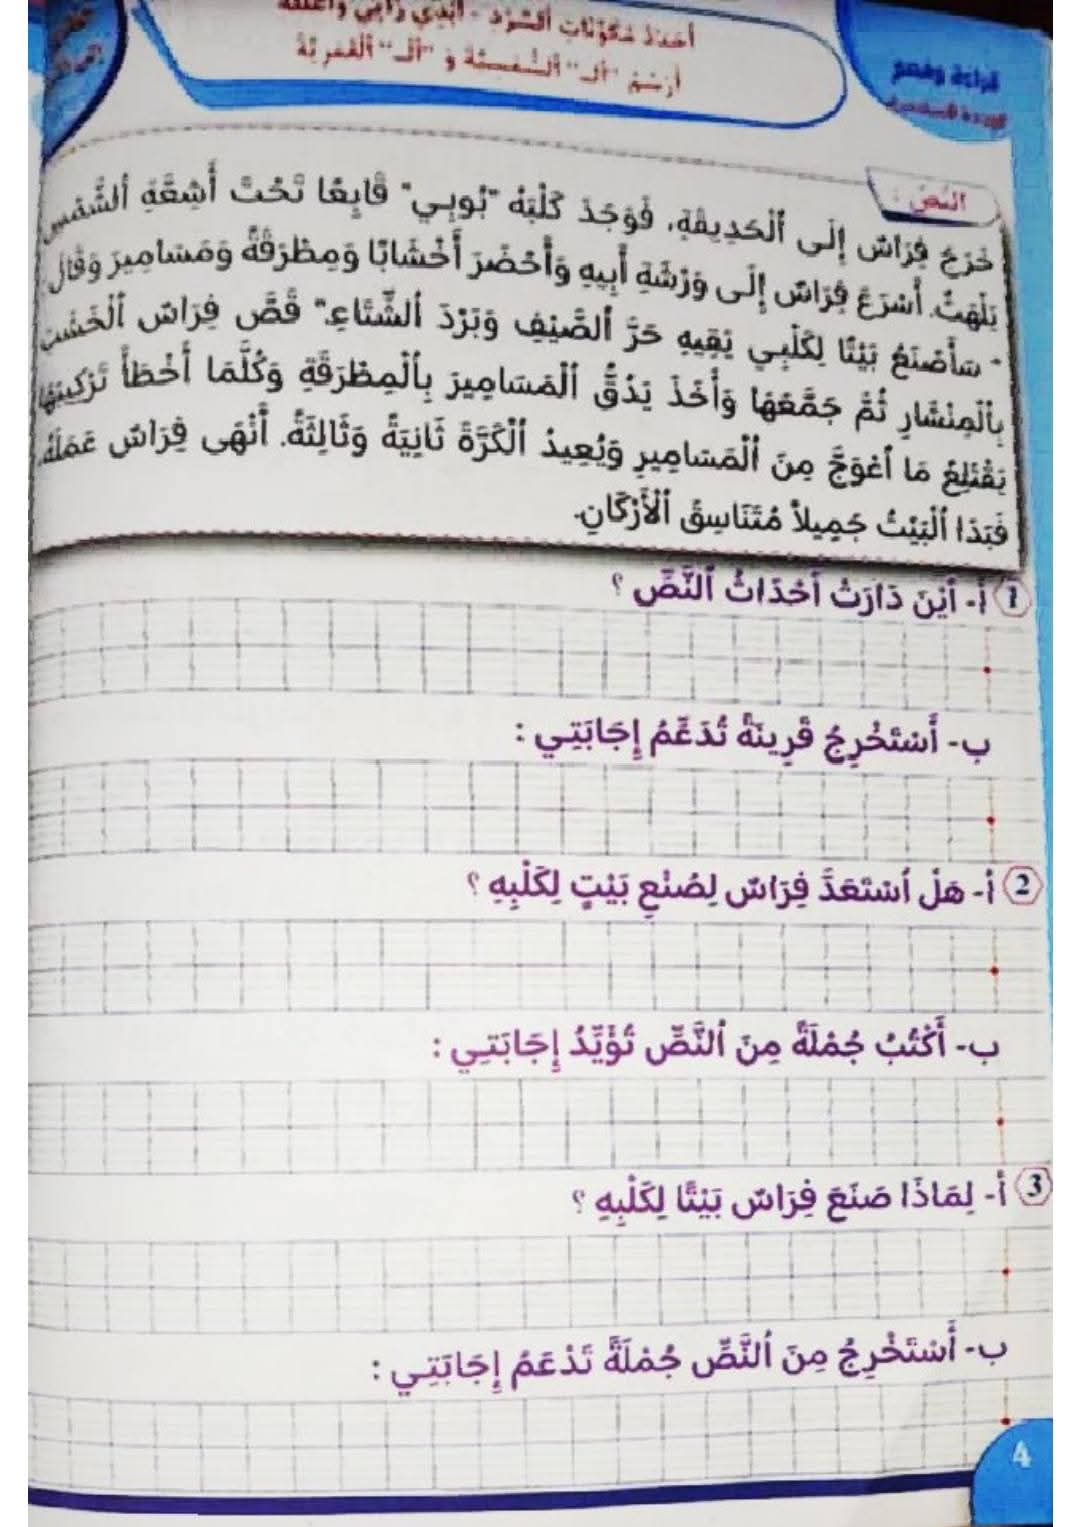 أُحَدِّدُ مُكَوِّنَاتِ ٱلسَّرْدِ - أُبْدِي رَأْيِي وَأُعَلِّلُهُ
أَرْسُمُ "ٱلـ" ٱلشَّمْسِيَّة وَ "ٱلـ" ٱلْقَمَرِيَّة
قراءة وفهم
النَّصُّ :
خَرَجَ فِرَاسٌ إِلَى ٱلْحَدِيقَةِ، فَوَجَدَ كَلْبَهُ "بُوبِي" قَابِعًا تَحْتَ أَشِعَّةِ ٱلشَّمْسِ
يَلْهَثُ. أَسْرَعَ فِرَاسٌ إِلَى وَرْشَةِ أَبِيهِ وَأَحْضَرَ أَخْشَابًا وَمِطْرَقَةً وَمَسَامِيرَ وَقَالَ
"- سَأَصْنَعُ بَيْتًا لِكَلْبِي يَقِيهِ حَرَّ ٱلصَّيْفِ وَبَرْدَ ٱلشِّتَاءِ." قَصَّ فِرَاسٌ ٱلْخَشَبَ
بِٱلْمِنْشَارِ ثُمَّ جَمَّعَهَا وَأَخَذَ يَدُقُّ ٱلْمَسَامِيرَ بِٱلْمِطْرَقَةِ وَكُلَّمَا أَخْطَأَ تَرْكِيبَهَا
يَقْتَلِعُ مَا ٱعْوَجَّ مِنَ ٱلْمَسَامِيرِ وَيُعِيدُ ٱلْكَرَّةَ ثَانِيَةً وَثَالِثَةً. أَنْهَى فِرَاسٌ عَمَلَهُ
فَبَدَا ٱلْبَيْتُ جَمِيلاً مُتَنَاسِقَ ٱلْأَرْكَانِ.
1 أ- أَيْنَ دَارَتْ أَحْدَاثُ ٱلنَّصِّ ؟
ب- أَسْتَخْرِجُ قَرِينَةً تُدَعِّمُ إِجَابَتِي :
2 أ- هَلْ ٱسْتَعَدَّ فِرَاسٌ لِصُنْعِ بَيْتٍ لِكَلْبِهِ ؟
ب- أَكْتُبُ جُمْلَةً مِنَ ٱلنَّصِّ تُؤَيِّدُ إِجَابَتِي :
3 أ- لِمَاذَا صَنَعَ فِرَاسٌ بَيْتًا لِكَلْبِهِ ؟
ب- أَسْتَخْرِجُ مِنَ ٱلنَّصِّ جُمْلَةً تَدْعَمُ إِجَابَتِي :
4